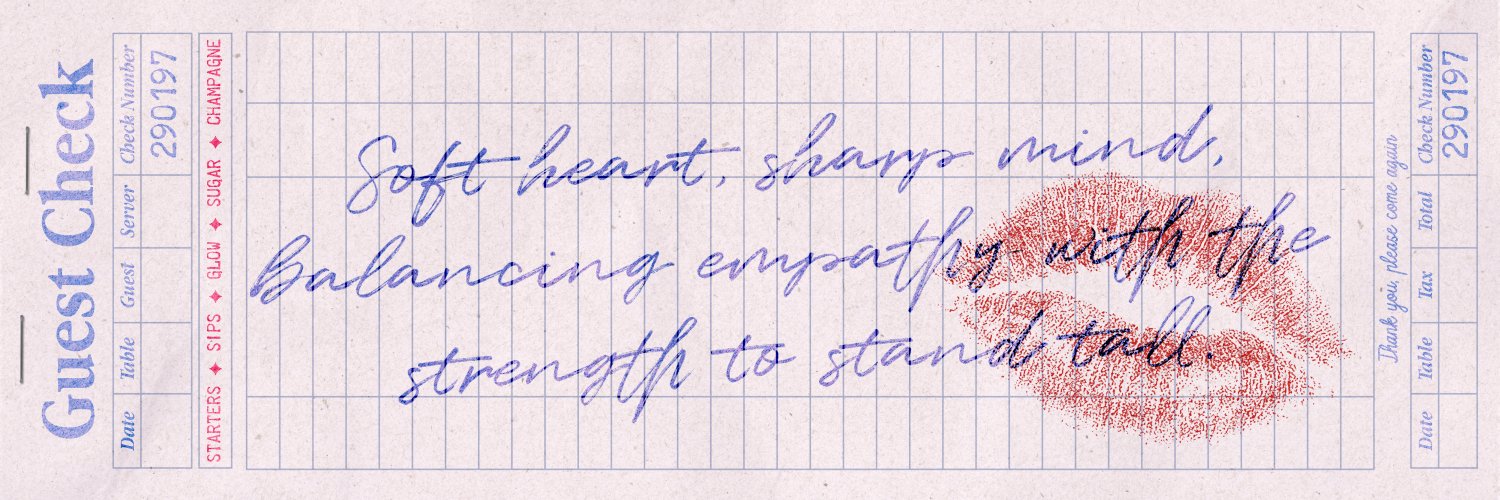 Guest Check
Check Number
290197
Server
Guest
Table
Date
STARTERS ✦ SIPS ✦ GLOW ✦ SUGAR ✦ CHAMPAGNE
Soft heart, sharp mind,
Balancing empathy with the
strength to stand tall.
Thank you, please come again
Check Number
290197
Total
Tax
Table
Date